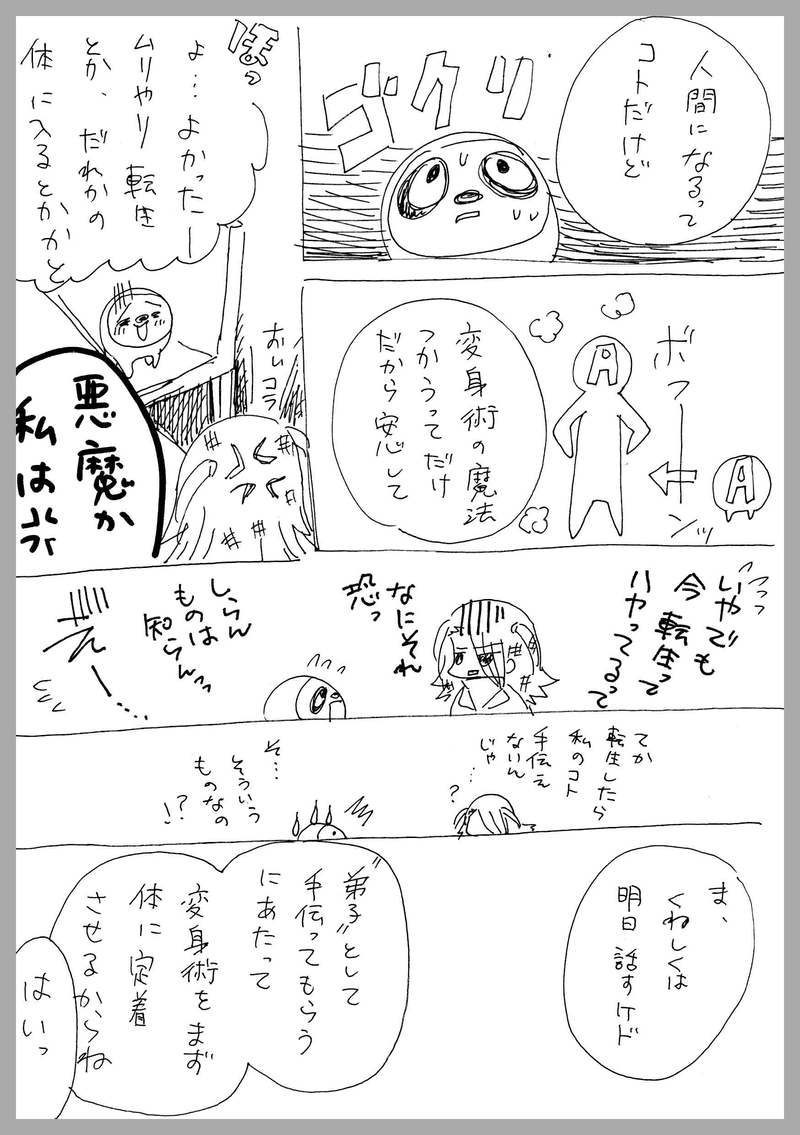 人間になるって
コトだけど
ゴクリ
変身術の魔法
つかうってだけ
だから安心して
ボフーンッ
A
A
ほっ
よ…よかったー
ムリやり転生
とか、だれかの
体に入るとかかと
おいコラ
悪魔か
私は!!
いやでも
今転生って
ハヤってるって
なにそれ
恐っ
しらん
ものは
知らんっ
えー…
てか
転生したら
私のコト
手伝え
ないん
じゃ
…?
そ…
そういう
ものなの
!?
ま、
くわしくは
明日話すケド
"弟子"として
手伝ってもらう
にあたって
変身術をまず
体に定着
させるからね
はいっ